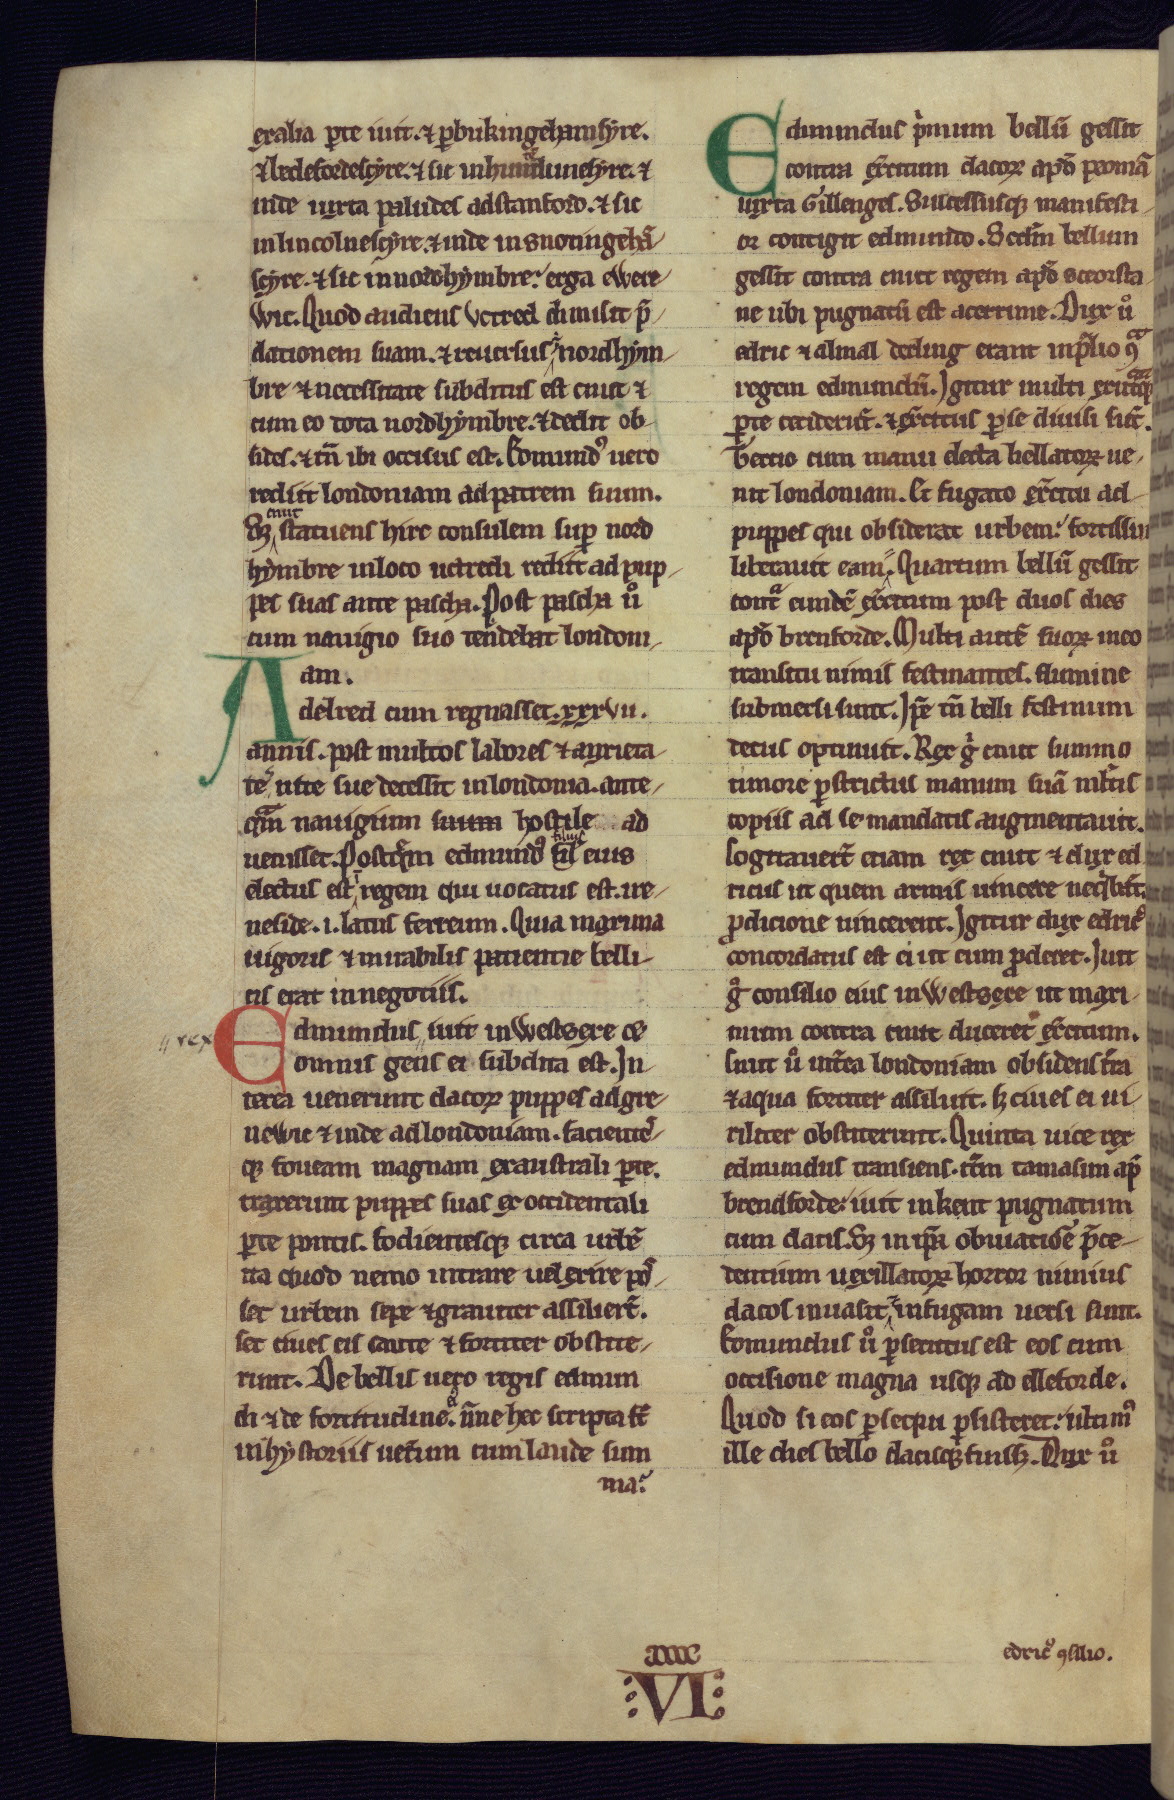 ex alia ꝑte iuit. ⁊ ꝑ bukingehamsyre.
⁊ bedefordescyre. ⁊ sic in hundunesyre. ⁊
inde iuxta paludes ad stanford. ⁊ sic
in lincolnescyre. ⁊ inde in snotingehā
scyre. ⁊ sic in nordhymbre. erga ewere
wic. Quod audiens vctred dimisit p̄
dationem suam. ⁊ reuersus ī nordhym
bre ⁊ necessitate subditus est cnut ⁊
cum eo tota nordhymbre. ⁊ dedit ob
sides. ⁊ tn̄ ibi occisus est. Edmundꝰ uero
rediit londoniam ad patrem suum.
Sꝫ cnut statuens hirc consulem suꝑ nord
hymbre in loco uctredi rediit ad pup
pes suas ante pascha. Post pascha u͛o
cum nauigio suo tendebat londoni
am.
Adelred cum regnasset. xxxvii.
annis. post multos labores ⁊ anxieta
tes uite sue decessit in londonia. ante
qͣm nauigium suum hostile ad
uenisset. Postqͣm edmundꝰ fil filius eius
electus est ī regem qui uocatus est. ire
neside. i. latus ferreum. Quia maxima
uigoris ⁊ mirabilis patientie belli
cis erat in negotiis.
Edmundus rex iuit in Westsexe ⁊
omnis gens ei subdita est. In
terea uenerunt dacoꝝ puppes ad gre
newic ⁊ inde ad londoniam. faciente͛s
qꝫ foueam magnam ex australi ꝑte.
traxerunt puppes suas ex occidentali
ꝑte pontis. fodientesqꝫ circa urbē
ita quod nemo intrare uel exire pos
set urbem sepe ⁊ grauiter assiliert̄.
set ciues eis caute ⁊ fortiter obstite
runt. De bellis uero regis edmun
di ⁊ de fortitudine ei͛ nn̄e hec scripta st̄
in hystoriis uet̄um cum laude sum
ma.
Edmundus p͛mum bellū gessit
contra ex͛citum dacoꝝ apd̄ peomā
iuxta Gillenges. Successusqꝫ manifesti
or contigit edmundo. Scd̄m bellum
gessit contra cnut regem apd̄ sceorsta
ne ubi pugnatū est acerrime. Dux u͛o
edric ⁊ almar derling erant in p̄lio ꝯͣ
regem edmundū. Igitur multi ex utͣqꝫ
ꝑte cecideru͛t. ⁊ ex͛citus ꝑ se diuisi sūt.
Tercio cum manu electa bellatoꝝ ue
nit londoniam. Et fugato ex͛citu ad
puppes qui obsiderat urbem. fortissim
liberauit eam. Quartum bellū gessit
contͣ eundē ex͛citum post duos dies
apd̄ brenforde. Multi autē suoꝝ in eo
transitu nimis festinantes. flumine
submersi sunt. Ip̄e tn̄ belli festinum
decus optinuit. Rex g̛ cnut summo
timore ꝑstrictus manum suā ml͛tis
copiis ad se mandatis augmentauit.
Cogitauert̄ etiam rex cnut ⁊ dux ed
ricus ut quem armis uincere neqͥbāt.
ꝓdicione uincerent. Igitur dux edricꝰ
concordatus est ei ut eum ꝓderet. Iuit
g̊ consilio eius in Westsexe ut maxi
mum contra cnut duceret ex͛citum.
Cnut u͛o int̄ea londoniam obsidens t̄ra
⁊ aqua fortiter assiluit. sꝫ ciues ei ui
riliter obstiterunt. Quinta uice rex
edmundus transiens. it̄m tamasim ap̄
brendforde. iuit in kent pugnatum
cum dacis. Sꝫ in ip̄a obuiatiōe p̄ce
dentium uexillatoꝝ horror nimius
dacos inuasit. ⁊ in fugam uersi sunt.
Edmundus u͛o ꝑsecutus est eos cum
occisione magna usqꝫ ad elleforde.
Quod si eos ꝑsequi ꝑsisteret. ultimꝰ
ille dies bello dacisqꝫ fuissꝫ. Dux u͛o
edricꝰ ꝯsilio.
xxxx
VI